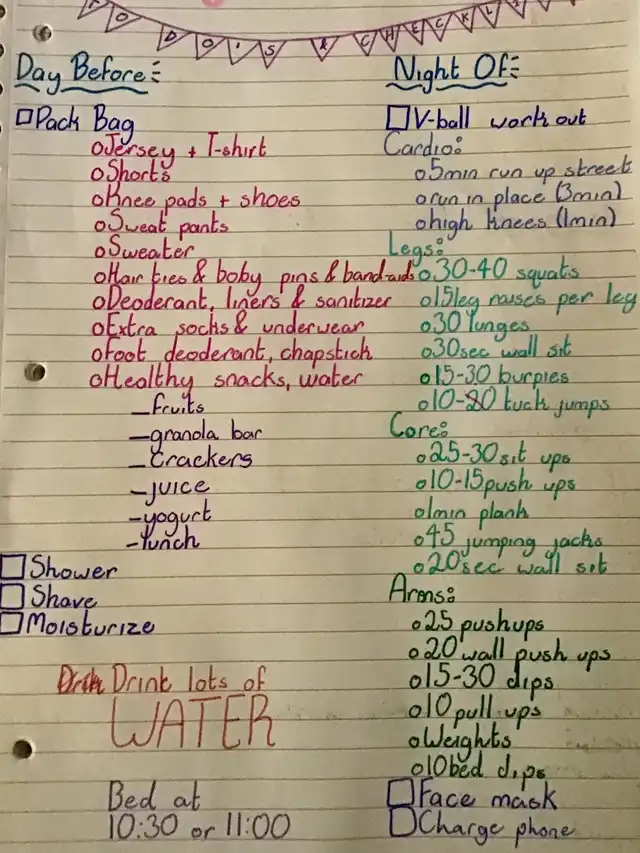 TO DO'S & CHECKLIST
Day Before:
Pack Bag
Jersey + T-shirt
Shorts
Knee pads + shoes
Sweat pants
Sweater
Hair ties & boby pins & band-aids
Deoderant, liners & sanitizer
Extra socks & underwear
Foot deoderant, chapstick
Healthy snacks, water
–fruits
–granola bar
–Crackers
–juice
–yogurt
–lunch
Shower
Shave
Moisturize
Drink lots of
WATER
Bed at
10:30 or 11:00
Night Of:
V-ball work out
Cardio:
5min run up street
run in place (3min)
high knees (1min)
Legs:
30-40 squats
15 leg raises per leg
30 lunges
30sec wall sit
15-30 burpies
10-20 tuck jumps
Core:
25-30 sit ups
10-15 push ups
1min plank
45 jumping jacks
20sec wall sit
Arms:
25 pushups
20 wall push ups
15-30 dips
10 pull ups
Weights
10 bed dips
Face mask
Charge phone